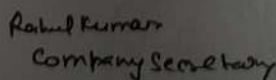 Rahul Kumar
Company Secretary